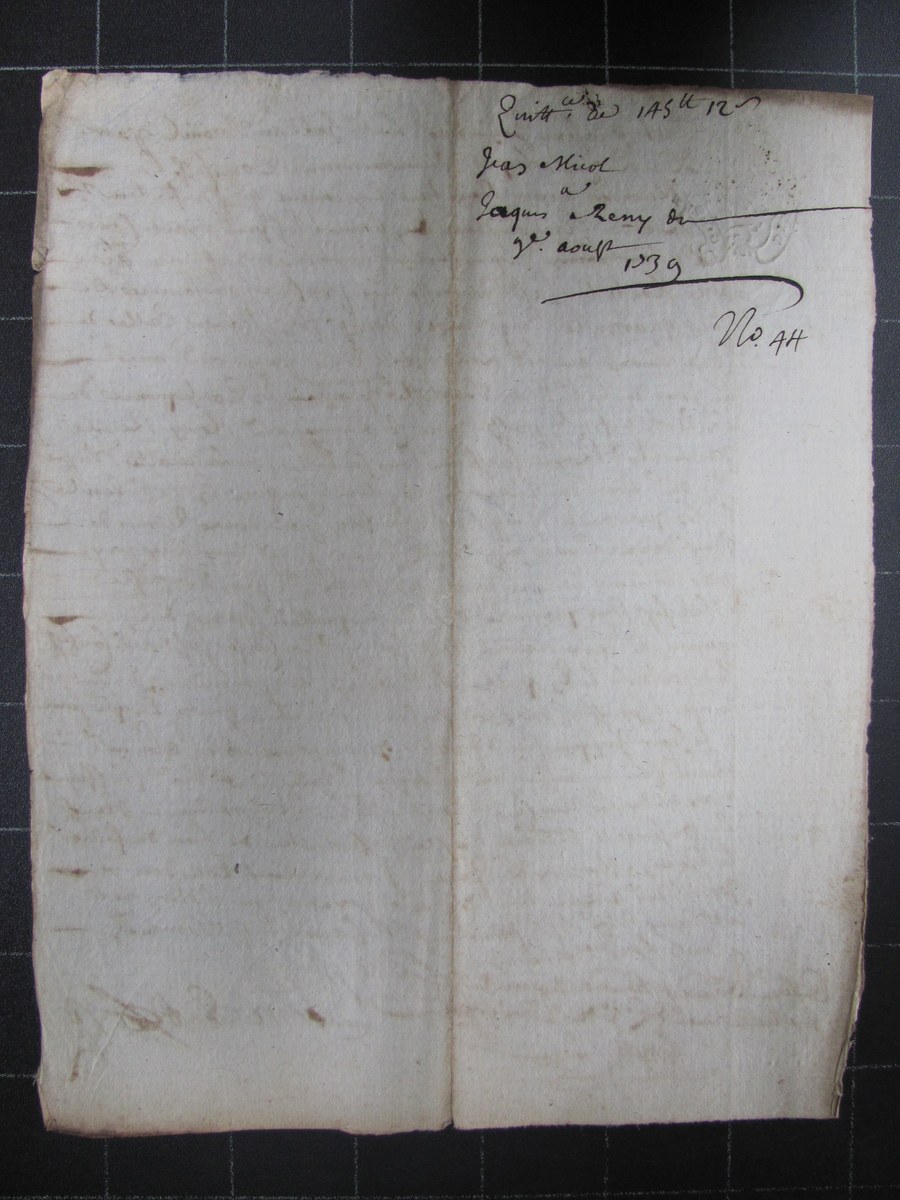 Quitt.ce de 145tt 12s
Jean Nicol
a
Jaques Remy du
9e. aoust
1739
No. 44